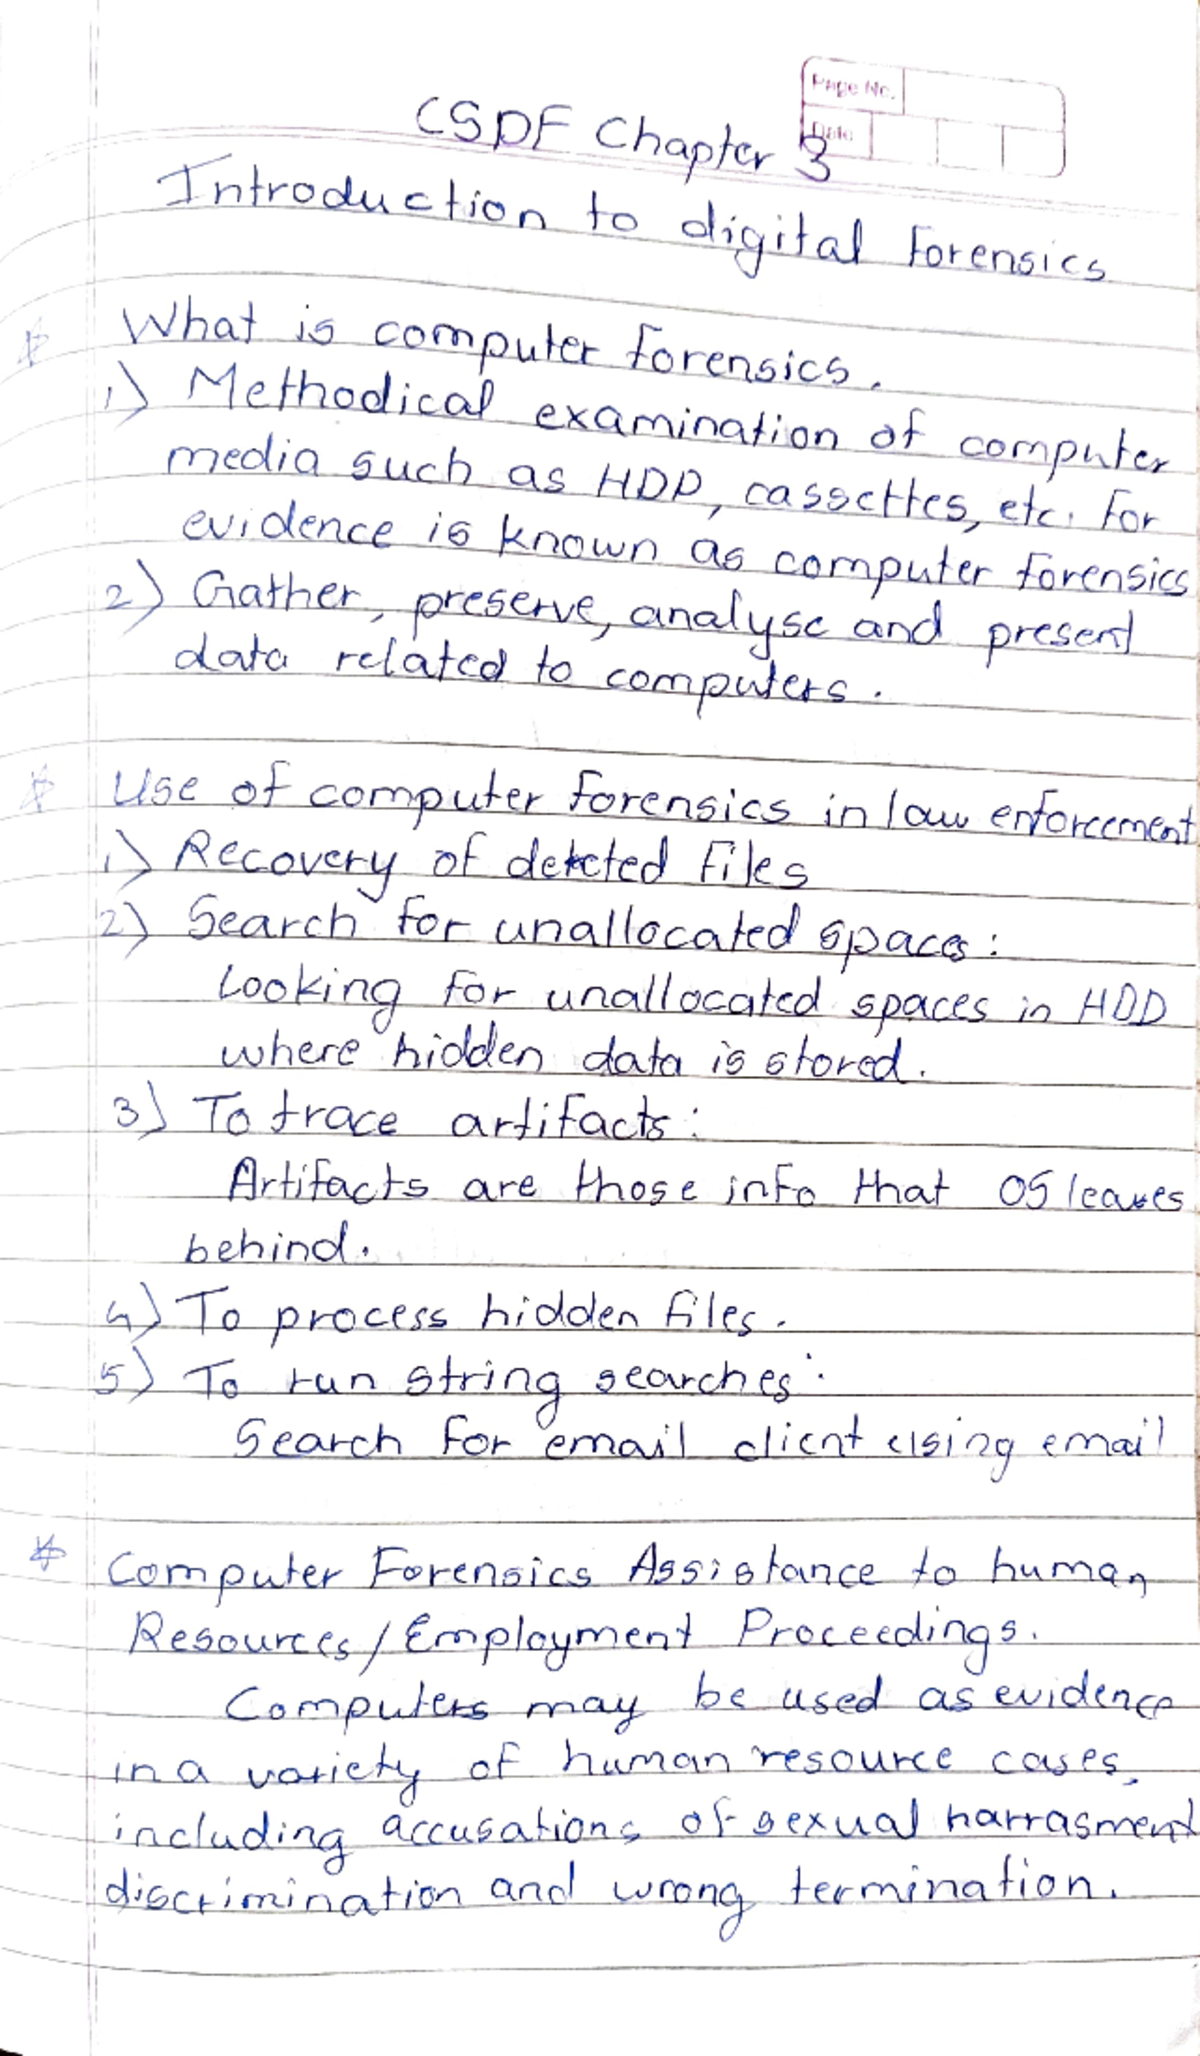 Page No.
Date
CSDF Chapter 3
Introduction to digital forensics
What is computer forensics.
1) Methodical examination of computer
media such as HDD, cassettes, etc. for
evidence is known as computer forensics
2) Gather, preserve, analyse and present
data related to computers.
Use of computer forensics in law enforcement
1) Recovery of deleted files
2) Search for unallocated spaces:
Looking for unallocated spaces in HDD
where hidden data is stored.
3) To trace artifacts:
Artifacts are those info that OS leaves
behind.
4) To process hidden files.
5) To run string searches:
Search for email client using email
* Computer Forensics Assistance to human
Resources/Employment Proceedings.
Computers may be used as evidence
in a variety of human resource cases,
including accusations of sexual harrasment
discrimination and wrong termination.